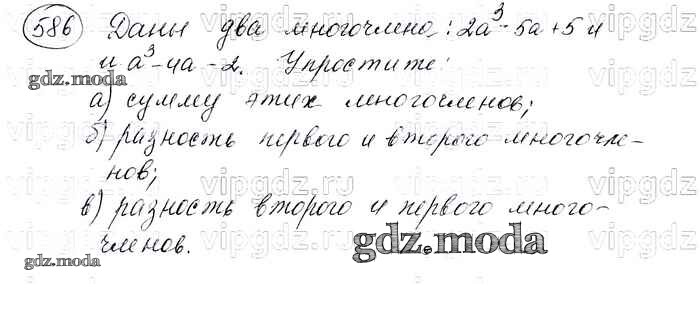 586 Даны два многочлена: 2a³ - 5a + 5 и
и a³ - 4a - 2. Упростите:
gdz.moda
а) сумму этих многочленов;
б) разность первого и второго многочле-
нов;
в) разность второго и первого много-
членов.
gdz.moda
gdz.moda
vipgdz.ru
vipgdz.ru
vipgdz.ru
vipgdz.ru